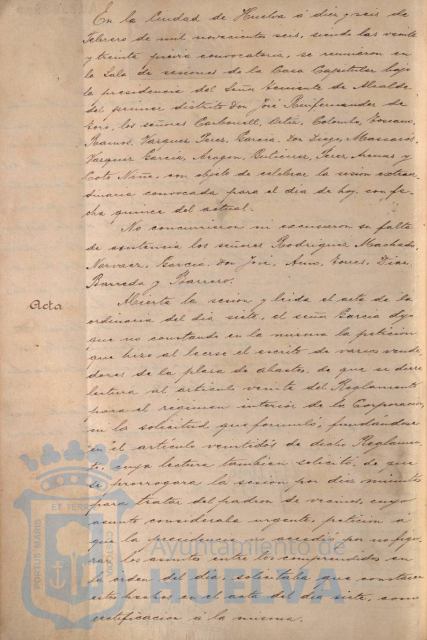 En la Ciudad de Huelva á diez y seis de
Febrero de mil novecientos seis, siendo las veinte
y treinta previa convocatoria, se reunieron en
la Sala de sesiones de la Casa Capitular bajo
la presidencia del Señor Teniente de Alcalde
del primer distrito Don José
los señores Carbonell, Ortiz, Colombo,
Ramos, Vazquez Perez, García Don Diego,
Vazquez García, Aragon, Gutierrez, Perez, Arenas y
Coto Núñez, con objeto de celebrar la sesion extraor-
dinaria convocada para el dia de hoy, con fe-
cha quince del actual.
No concurrieron ni escusaron su falta
de asistencia los señores Rodriguez Machado,
Narvaez, García Don José, Torres, Diaz,
Barreda y Barrero.
Acta
Abierta la sesion y leida el acta de la
ordinaria del dia siete, el señor García dijo
que no constando en la misma la peticion
que hizo al leerse el escrito de varios vende-
dores de la plaza de abastos, de que se diera
lectura al artículo veinte del Reglamento
para el régimen interior de la Corporacion,
en la solicitud que formuló, fundándose
en el artículo veintidos de dicho Reglamen-
to, cuya lectura tambien solicitó, de que
se prorrogara la sesion por diez minutos
para tratar del padron de vecinos, cuyo
asunto consideraba urgente, peticion á
que la presidencia no accedió por no figu-
rar los asuntos entre los comprendidos en
la orden del dia, solicitaba que constasen
estos hechos en el acta del dia siete, como
rectificacion á la misma.
PORTUS MARIS
ET TERRE
CUSTODIA
Ayuntamiento de
HUELVA